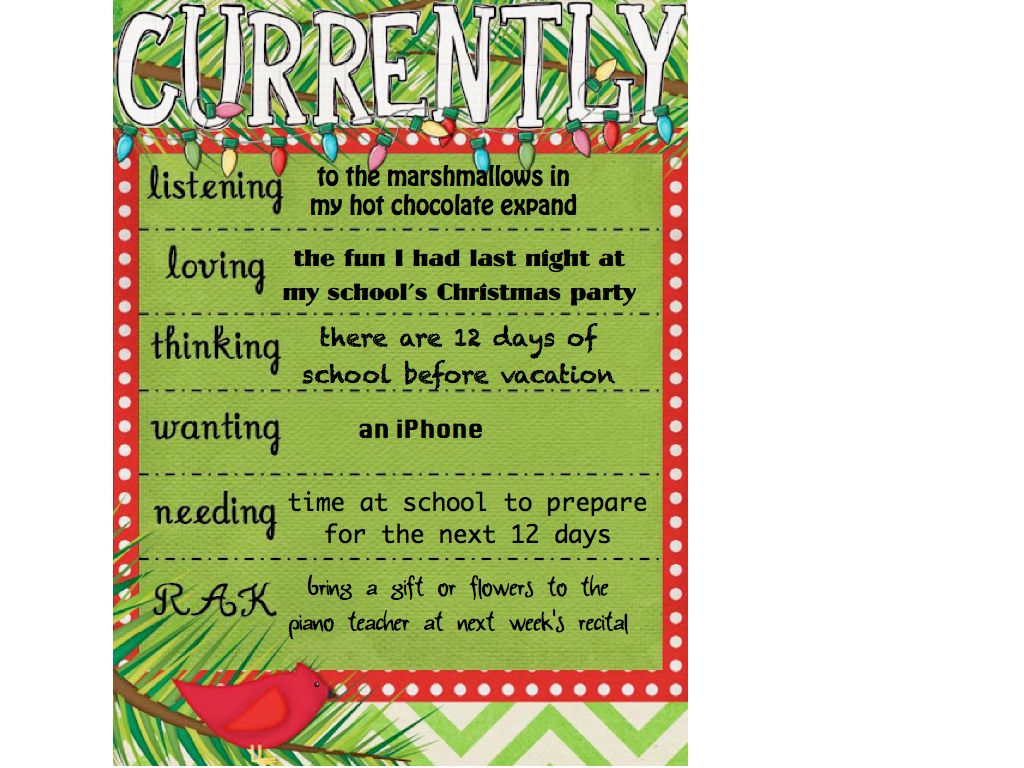 CURRENTLY
listening
to the marshmallows in
my hot chocolate expand
loving
the fun I had last night at
my school's Christmas party
thinking
there are 12 days of
school before vacation
wanting
an iPhone
needing
time at school to prepare
for the next 12 days
RAK
bring a gift or flowers to the
piano teacher at next week's recital